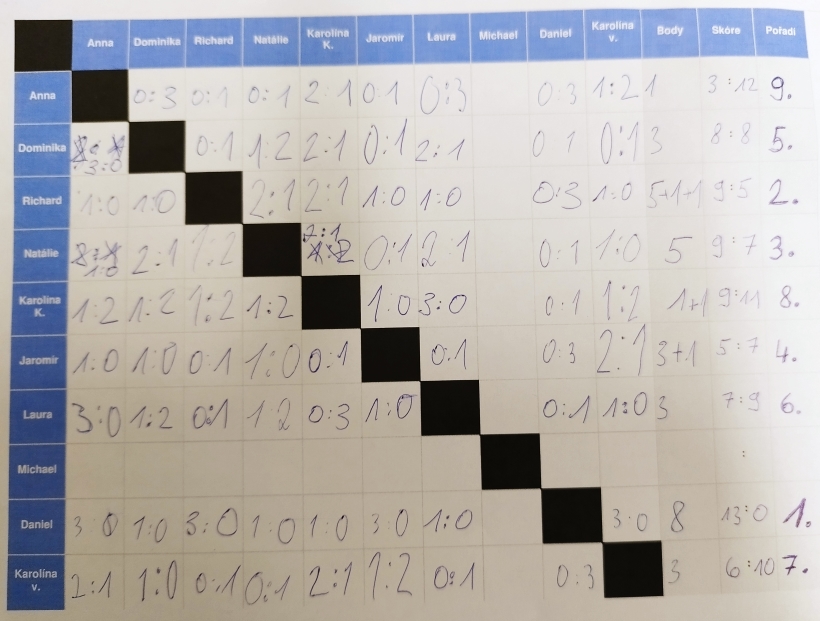 Anna Dominika Richard Natálie Karolína K. Jaromír Laura Michael Daniel Karolína v. Body Skóre Pořadí
Anna 0:3 0:1 0:1 2:1 0:1 0:3 0:3 1:2 1 3:12 9.
Dominika 3:0 0:1 1:2 2:1 0:1 2:1 0:1 0:1 3 8:8 5.
Richard 1:0 1:0 2:1 2:1 1:0 1:0 0:3 1:0 5+1+1 9:5 2.
Natálie 1:0 2:1 1:2 2:1 0:1 2:1 0:1 1:0 5 9:7 3.
Karolína K. 1:2 1:2 1:2 1:2 1:0 3:0 0:1 1:2 1+1 9:11 8.
Jaromír 1:0 1:0 0:1 1:0 0:1 0:1 0:3 2:1 3+1 5:7 4.
Laura 3:0 1:2 0:1 1:2 0:3 1:0 0:1 1:0 3 7:9 6.
Michael :
Daniel 3:0 1:0 3:0 1:0 1:0 3:0 1:0 3:0 8 13:0 1.
Karolína v. 2:1 1:0 0:1 0:1 2:1 1:2 0:1 0:3 3 6:10 7.